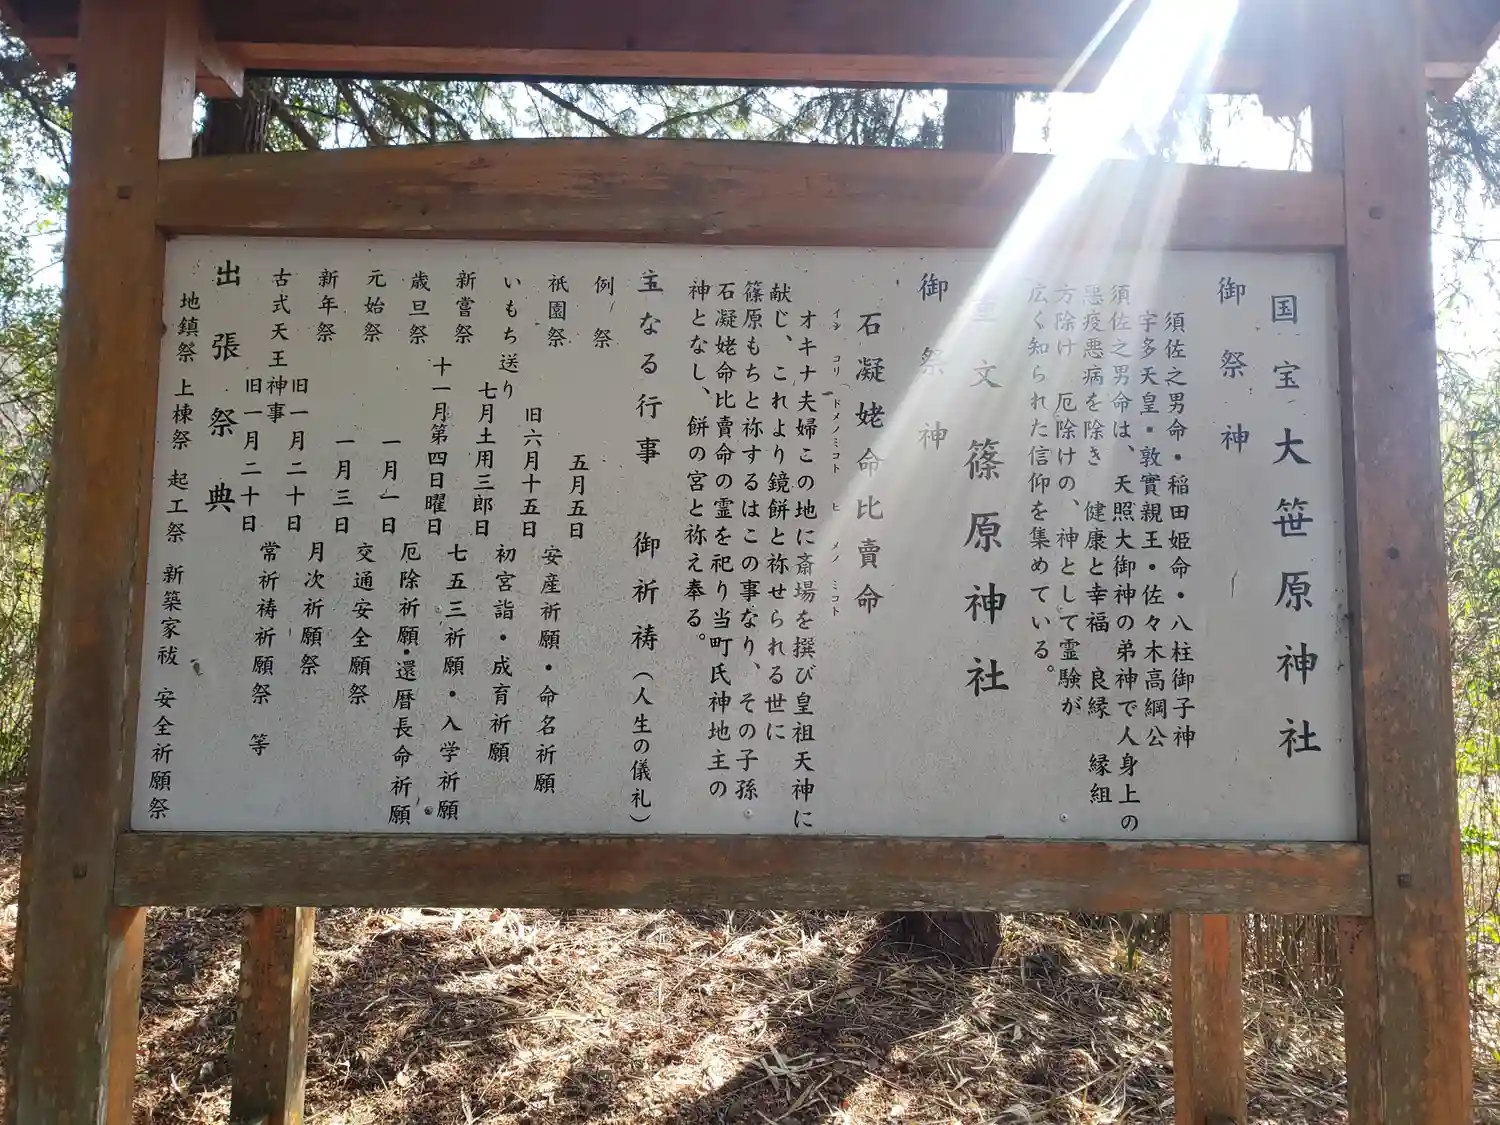 国宝大笹原神社
御祭神
須佐之男命・稲田姫命・八柱御子神
宇多天皇・敦實親王・佐々木高綱公
須佐之男命は、天照大御神の弟神で人身上の
悪疫悪病を除き 健康と幸福 良縁 縁組
方除け 厄除けの、神として霊験が
広く知られた信仰を集めている。
重文 篠原神社
御祭神
石凝姥命比賣命
イシ コリ(ドメノミコト ヒ メノ ミコト
オキナ夫婦この地に斎場を撰び皇祖天神に
献じ、これより鏡餅と祢せられる世に
篠原もちと祢するはこの事なり、その子孫
石凝姥命比賣命の霊を祀り当町氏神地主の
神となし、餅の宮と祢え奉る。
主なる行事 御祈祷(人生の儀礼)
例祭 五月五日 安産祈願・命名祈願
祇園祭 旧六月十五日 初宮詣・成育祈願
いもち送り 七月土用三郎日 七五三祈願・入学祈願
新嘗祭 十一月第四日曜日 厄除祈願・還暦長命祈願
歳旦祭 一月一日 交通安全願祭
元始祭 一月三日 月次祈願祭
新年祭 旧一月二十日 常祈祷祈願祭 等
古式天王神事 旧一月二十日
出張祭典
地鎮祭 上棟祭 起工祭 新築家祓 安全祈願祭